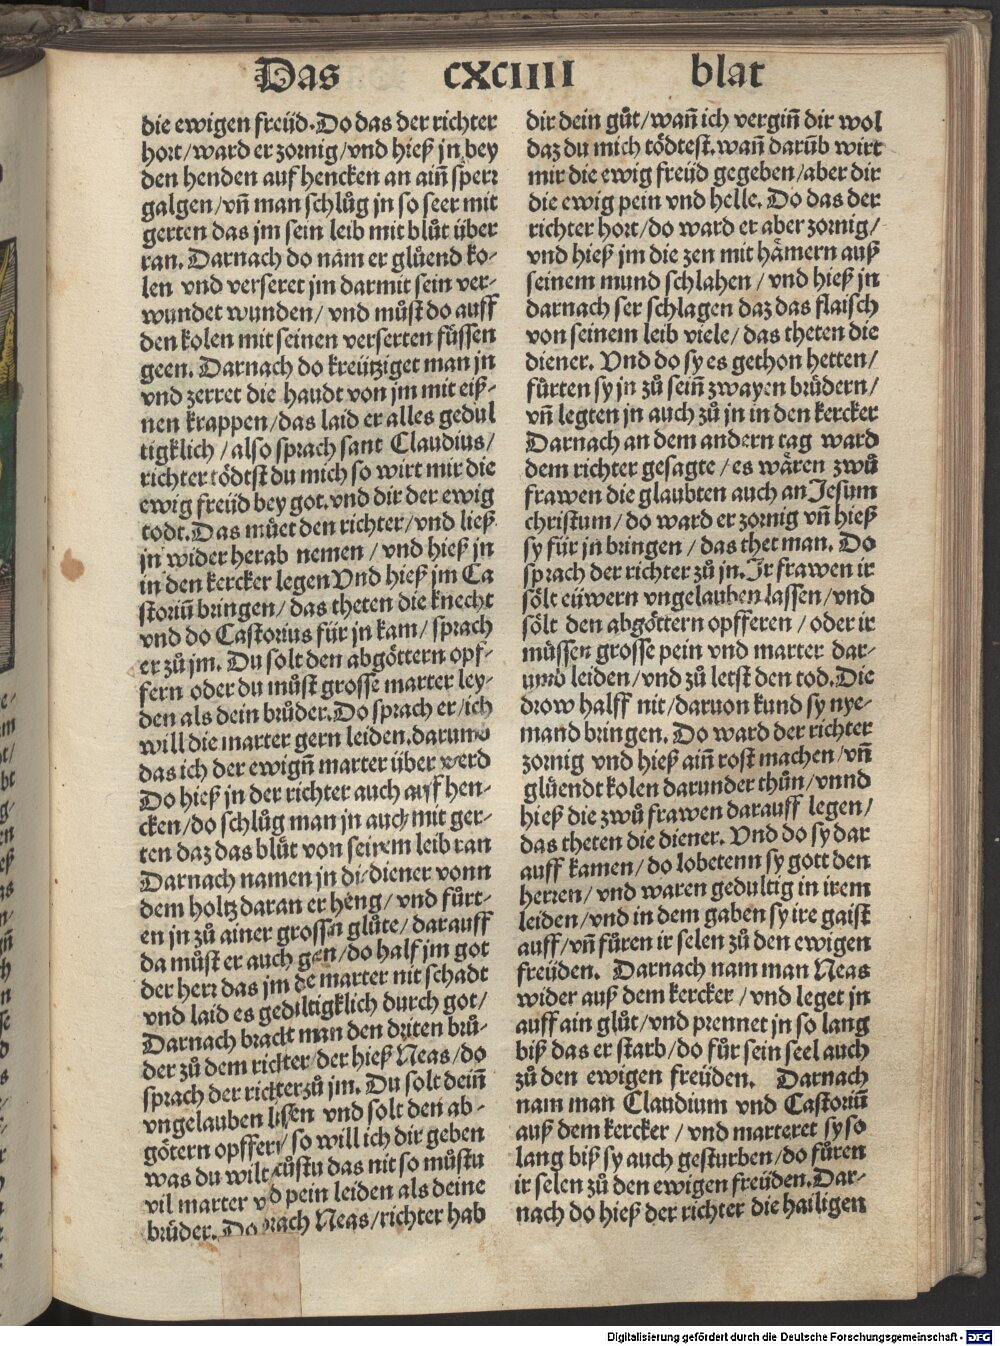 Das CXCIIII blat
die ewigen freüd. Do das der richter
hort/ward er zornig/vnd hieß jn bey
den henden auf hencken an ainñ sperr
galgen/vñ man schlůg jn so seer mit
gerten das jm sein leib mit blůt über
ran. Darnach do nam er glüend ko-
len vnd verseret jm darmit sein ver-
wundet wunden/vnd můst do auff
den kolen mit seinen verserten füssen
geen. Darnach do kreützget man jn
vnd zerret die haudt von jm mit eiß-
nen krappen/das laid er alles gedul
tigklich/also sprach sant Claudius/
richter tödtst du mich so wirt mir die
ewig freüd bey got.vnd dir der ewig
todt.Das müet den richter/vnd ließ
jn wider herab nemen/vnd hieß jn
in den kercker legen Vnd hieß jm Ca
storiuñ bringen/das theten die knecht
vnd do Castorius für jn kam/sprach
er zů jm. Du solt den abgöttern opf-
fern oder du můst grosse marter ley-
den als dein brüder. Do sprach er/ich
will die marter gern leiden.darumb
das ich der ewigñ marter über werd
Do hieß jn der richter auch auff hen-
cken/do schlůg man jn auch mit ger-
ten daz das blůt von seinem leib ran
Darnach namen jn di diener vonn
dem holtz daran er heng/vnd fůrt-
en jn zů ainer grossen glůte/darauff
da můst er auch gen/do half jm got
der herr das jm de marter nit schadt
vnd laid es gedultigklich durch got/
Darnach bracht man den driten brů-
der zů dem richter der hieß Neas/do
sprach der richter zů jm. Du solt deinñ
vngelauben lassen vnd solt den ab-
götern opffern/so will ich dir geben
was du wilt/tůstu das nit so můstu
vil marter vnd pein leiden als deine
brüder. Do sprach Neas/richter hab
dir dein gůt/wañ ich verginñ dir wol
daz du mich tödtest.wañ darüb wirt
mir die ewig freüd gegeben/aber dir
die ewig pein vnd helle. Do das der
richter hort/do ward er aber zornig/
vnd hieß jm die zen mit hämern auß
seinem mund schlahen/vnd hieß jn
darnach ser schlagen daz das flaisch
von seinem leib viele/das theten die
diener. Vnd do sy es gethon hetten/
fůrten sy jn zů seinñ zwayen brüdern/
vñ legten jn auch zů jn in den kercker
Darnach an dem andern tag ward
dem richter gesagte/es wären zwů
frawen die glaubten auch an Jesum
christum/do ward er zornig vñ hieß
sy für jn bringen/das thet man. Do
sprach der richter zů jn.Ir frawen ir
sölt eüwern vngelauben lassen/vnd
sölt den abgöttern opfferen/oder ir
müssen grosse pein vnd marter dar-
umb leiden/vnd zů letst den tod.Die
drow halff nit/daruon kund sy nye-
mand bringen. Do ward der richter
zornig vnd hieß ainñ rost machen/vñ
glüendt kolen darunder thůn/vnnd
hieß die zwů frawen darauff legen/
das theten die diener. Vnd do sy dar
auff kamen/do lobetenn sy gott den
herren/vnd waren gedultig in irem
leiden/vnd in dem gaben sy ire gaist
auff/vñ fůren ir selen zů den ewigen
freüden. Darnach nam man Neas
wider auß dem kercker/vnd leget jn
auff ain glůt/vnd prennet jn so lang
biß das er starb/do fůr sein seel auch
zů den ewigen freüden. Darnach
nam man Claudium vnd Castoriuñ
auß dem kercker/vnd marteret sy so
lang biß sy auch gesturben/do fůren
ir selen zů den ewigen freüden.Dar-
nach do hieß der richter die hailigen
Digitalisierung gefördert durch die Deutsche Forschungsgemeinschaft - DFG